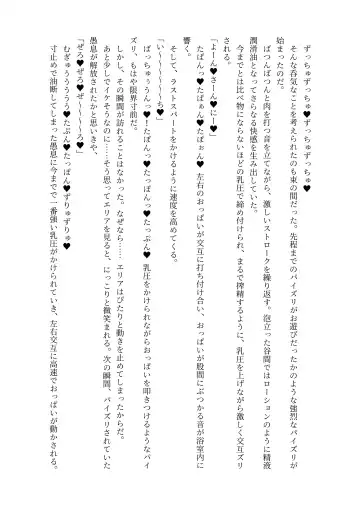 ずっちゅずっちゅ♥ずっちゅずっちゅ♥
そんな呑気なことを考えられたのも束の間だった。先程までのパイズリがお遊びだったかのような強烈なパイズリが
始まったのだ。
ばつんばつんと肉を打つ音を立てながら、激しいストロークを繰り返す。泡立った谷間ではローションのように精液
潤滑油となってさらなる快感を生み出していた。
今までとは比べ物にならないほどの乳圧で締め付けられ、まるで搾精するように、乳圧を上げながら激しく交互ズリ
される。
「よーん♥さーん♥にー♥」
たぱんっ♥たぱぁん♥たぱぉん♥　左右のおっぱいが交互に打ち付け合い、おっぱいが股間にぶつかる音が浴室内に
響く。
そして、ラストスパートをかけるように速度を高めてくる。
「い〜〜〜〜〜ち♥」
ばっちゅぅぅんっ♥たぱんっ♥たっぱんっ♥たっぷん♥　乳圧をかけられながらおっぱいを叩きつけるようなパイ
ズリ、もはや限界寸前だ。
しかし、その瞬間が訪れることはなかった。なぜなら……エリアはぴたりと動きを止めてしまったからだ。
あと少しでイケそうなのに……そう思ってエリアを見ると、にっこりと微笑まれる。次の瞬間、パイズリされていた
愚息が解放されたかと思いきや、
「ぜろ♥ぜろ♥ぜ〜〜〜〜ろ♥」
むぎゅううううう♥たぷん♥たっぱん♥ずりゅずりゅ♥
寸止めで油断してしまった愚息に今までで一番強い乳圧がかけられていき、左右交互に高速でおっぱいが動かされる。